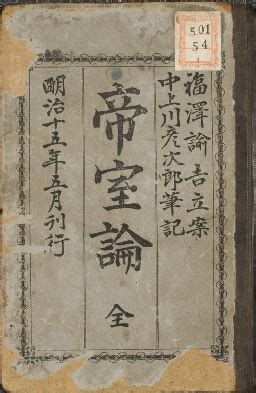 福澤諭吉立案
中上川彦次郎筆記
帝室論 全
明治十五年五月刊行
501
54